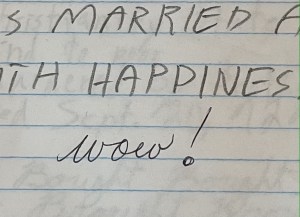 S MARRIED A
TH HAPPINES
wow!